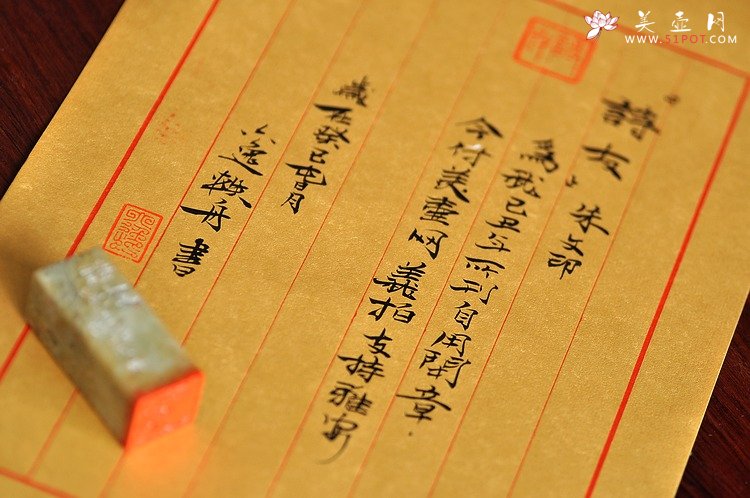 美壶网
WWW.51POT.COM
詩友 朱文印
為我己丑年所刊自用閒章.
今付美壷网義拍支持雅安
歲在癸巳四月
六逸軼舟書